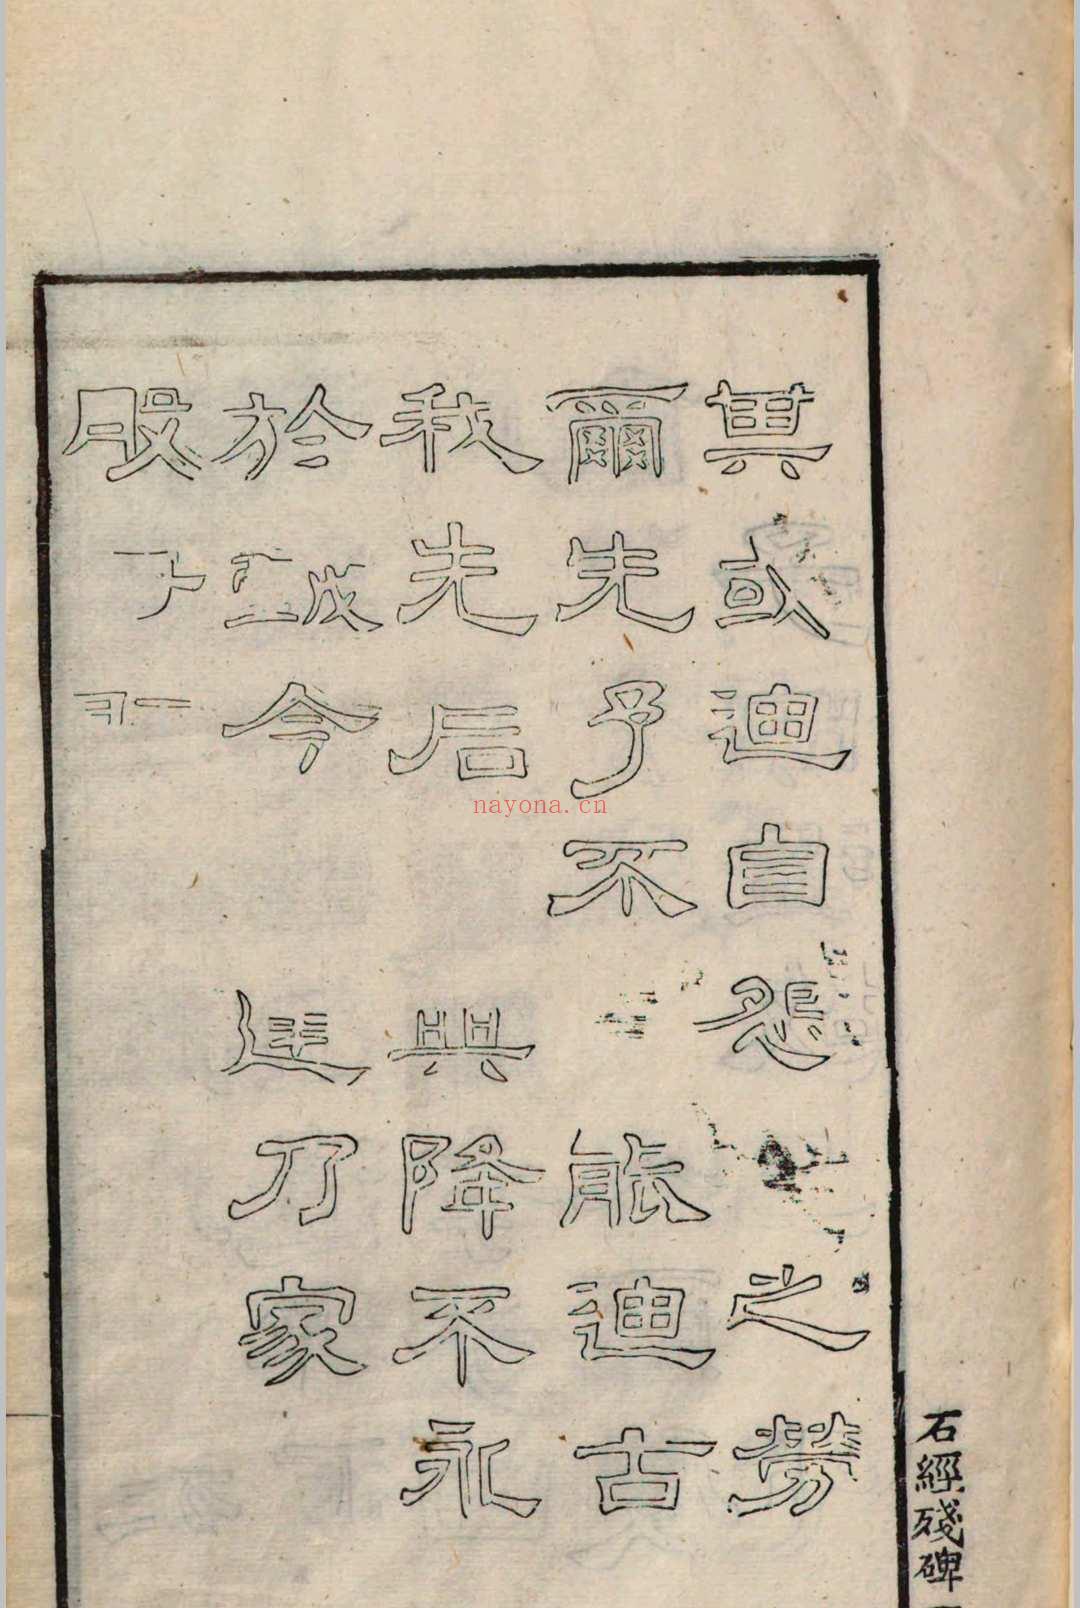 其或迪自怨之勞
爾先予不能迪古
我先后興降不永
於戲今建乃家
般
石經殘碑
nayona.cn